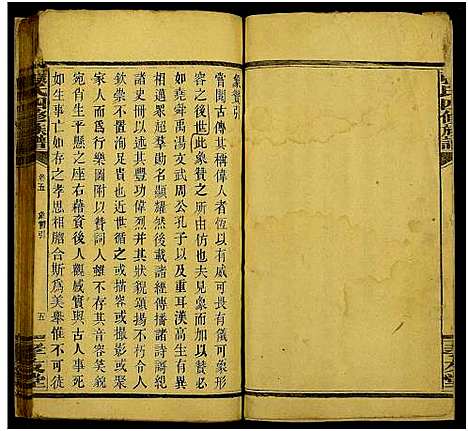 象贊引
嘗聞古傳其稱偉人者恆以有威可畏有儀可象形
容之後世此象贊之所由仿也夫見象而加以贊必
如堯舜禹湯文武周公孔子以及重耳漢高生有異
相遇眾超羣勛名顯耀然後載諸經傳播諸詩謌紀
諸史冊以述其豐功偉烈并其狀貌頌揚不朽令人
欽崇不置洵足貴也近世循之或描或撮影或聚
家人而爲行樂圖附以贊詞人雖不存其音容笑貌
宛肖生平懸之座右藉資後人觀感實與古人事死
如生事亡如存之孝思相脗合斯爲美舉惟不可徒
氏四修族譜
卷五
象贊引
五
孝友堂